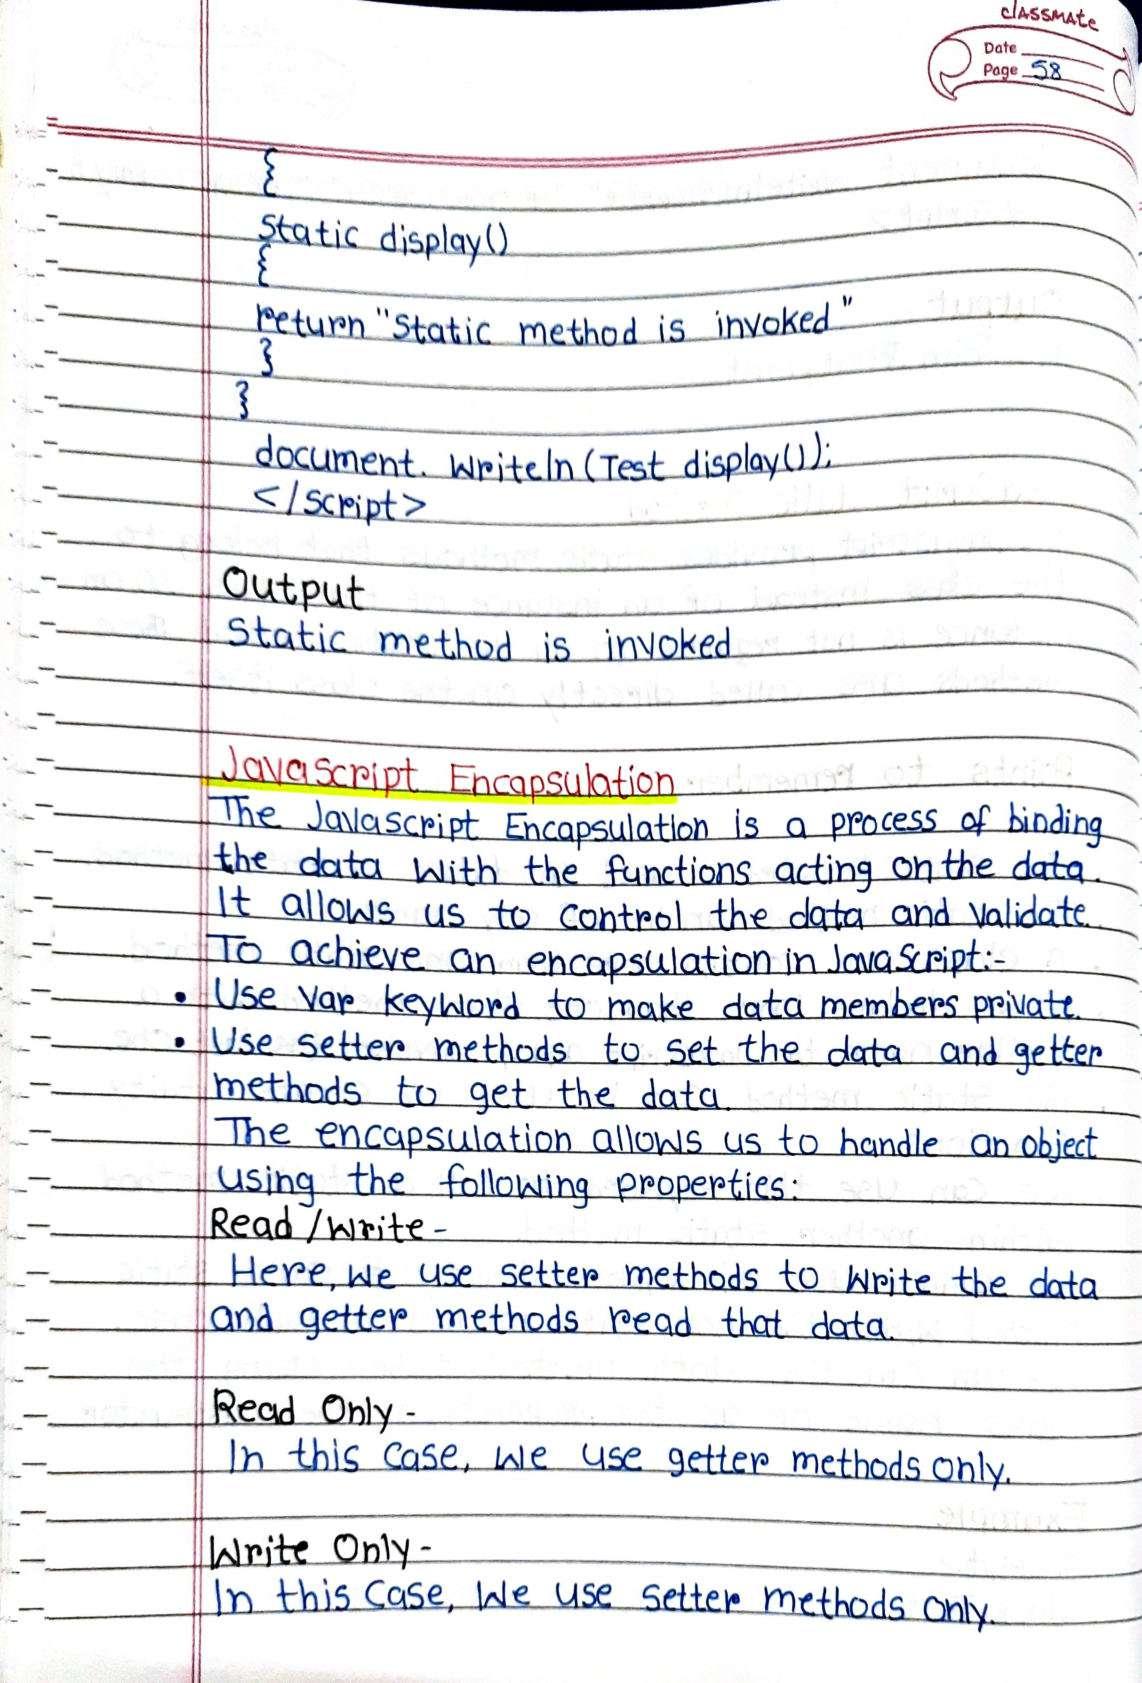 classmate
Date
Page 58
{
Static display()
{
return "Static method is invoked"
}
}
document. Writeln (Test display());
</Script>
Output
Static method is invoked
JavaScript Encapsulation
The JavaScript Encapsulation is a process of binding
the data with the functions acting on the data.
It allows us to control the data and validate.
To achieve an encapsulation in JavaScript:-
• Use var keyword to make data members private.
• Use setter methods to set the data and getter
methods to get the data.
The encapsulation allows us to handle an object
using the following properties:
Read /Write -
Here, we use setter methods to write the data
and getter methods read that data.
Read Only -
In this case, we use getter methods only.
Write Only -
In this case, we use setter methods only.